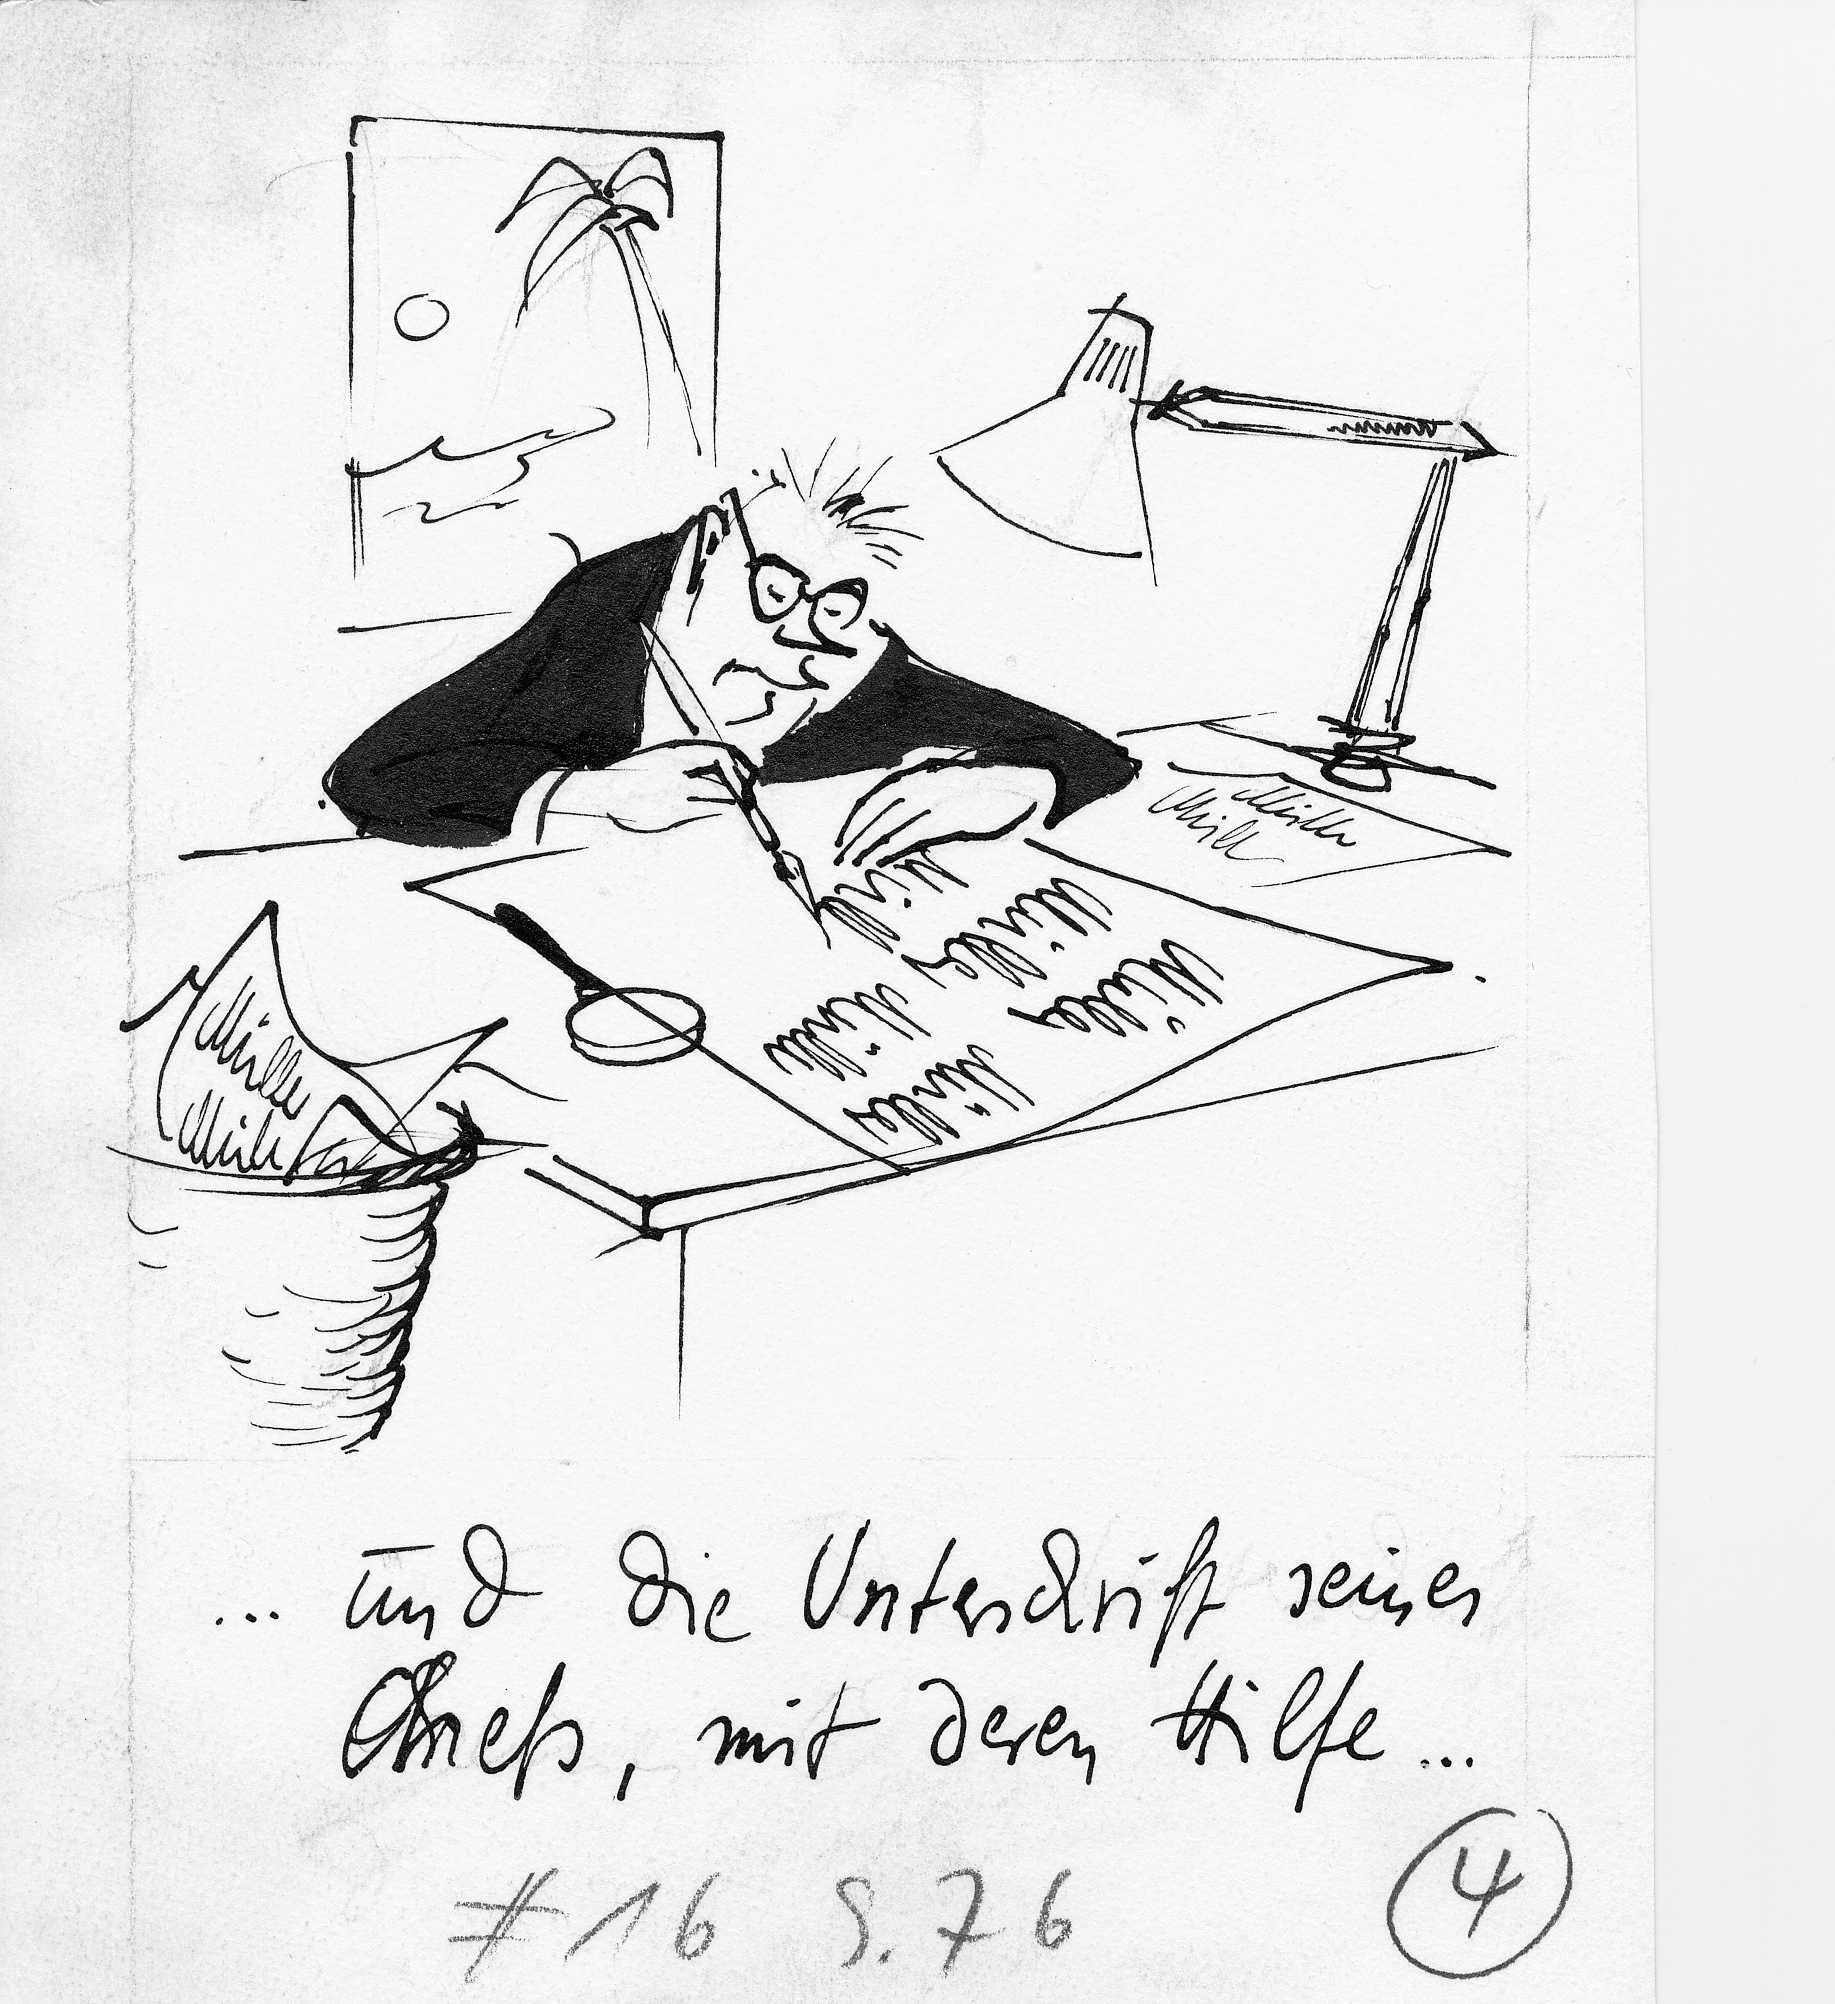 Müller
Müller
Müller
Müller
Müller
Müller
... und die Unterschrift seines
Chefs, mit deren Hilfe ...
# 16 S. 76
4